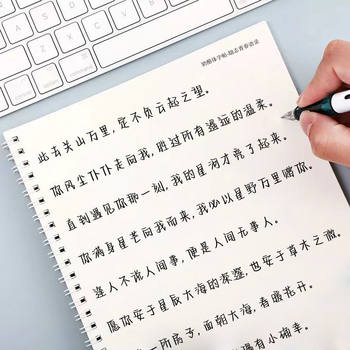 奶酪体字帖·励志青春语录
此去关山万里，定不负云起之望。
你风尘仆仆走向我，胜过所有遥远的温柔。
直到遇见你那一刻，我的星河才亮了起来。
你满身星芒向我而来，我必以星野万里赠你。
逢人不说人间事，便是人间无事人。
愿你安于星辰大海的深邃，也安于草木之微。
一所房子，面朝大海，春暖花开。
得有小确幸。